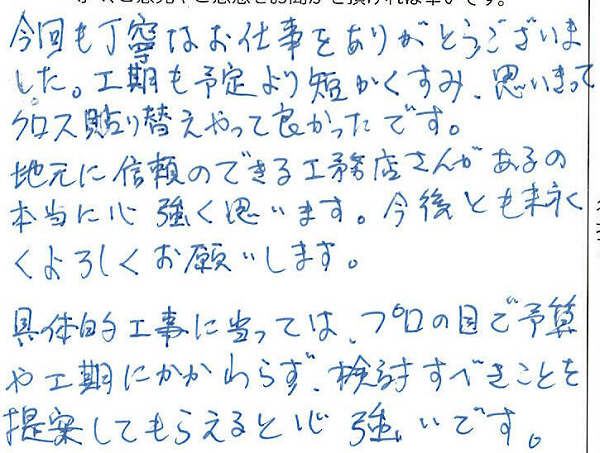 今回も丁寧なお仕事をありがとうございま
した。工期も予定より短かくすみ、思いきって
クロス貼り替えやって良かったです。
地元に信頼のできる工務店さんがあるの
本当に心強く思います。今後とも末永
くよろしくお願いします。
具体的工事に当っては、プロの目で予算
や工期にかかわらず、検討すべきことを
提案してもらえると心強いです。